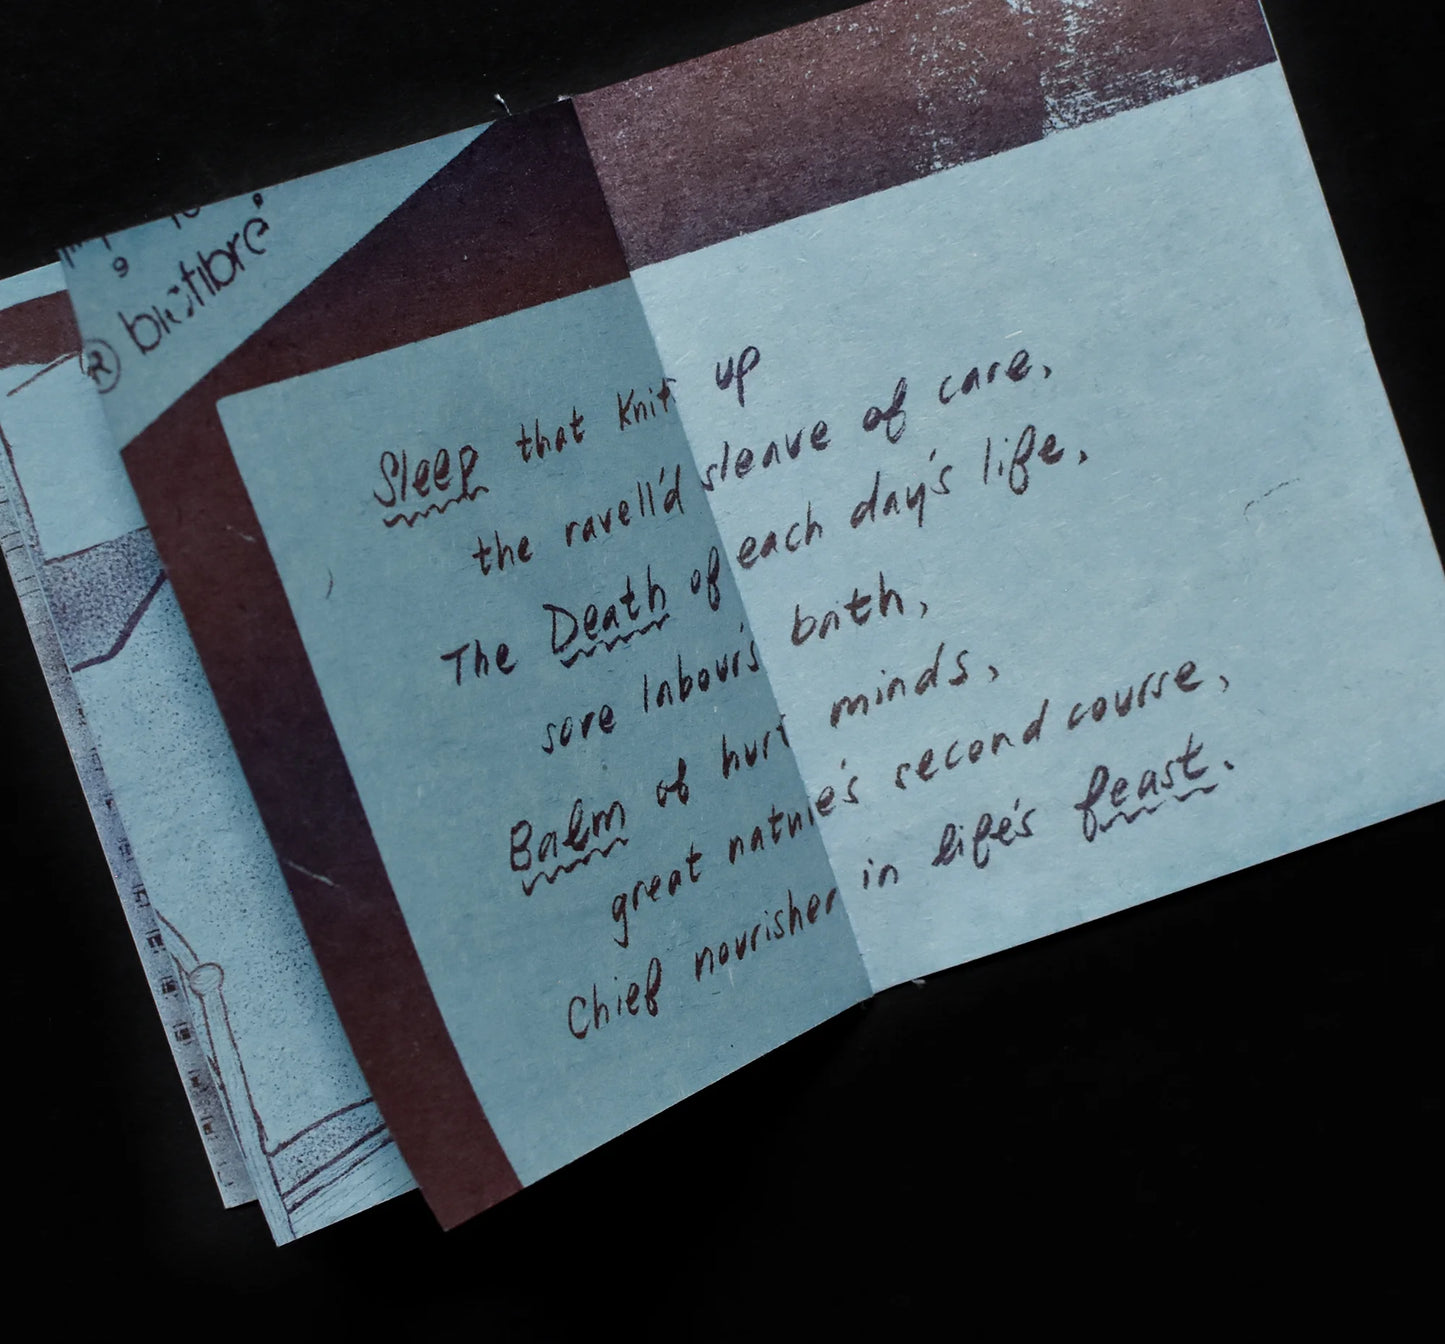 9 10
® biofibre
Sleep that Knit up
the ravell'd sleave of care,
The Death of each day's life,
sore labour's bath,
Balm of hurt minds,
great nature's second course,
Chief nourisher in life's feast.